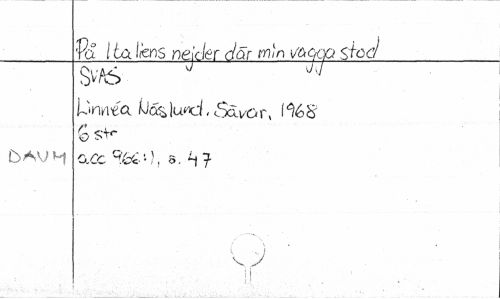 På Italiens nejder där min vagga stod
SVAS
Linnéa Näslund. Sävar, 1968
6 str
DAUM acc 966:1, s. 47